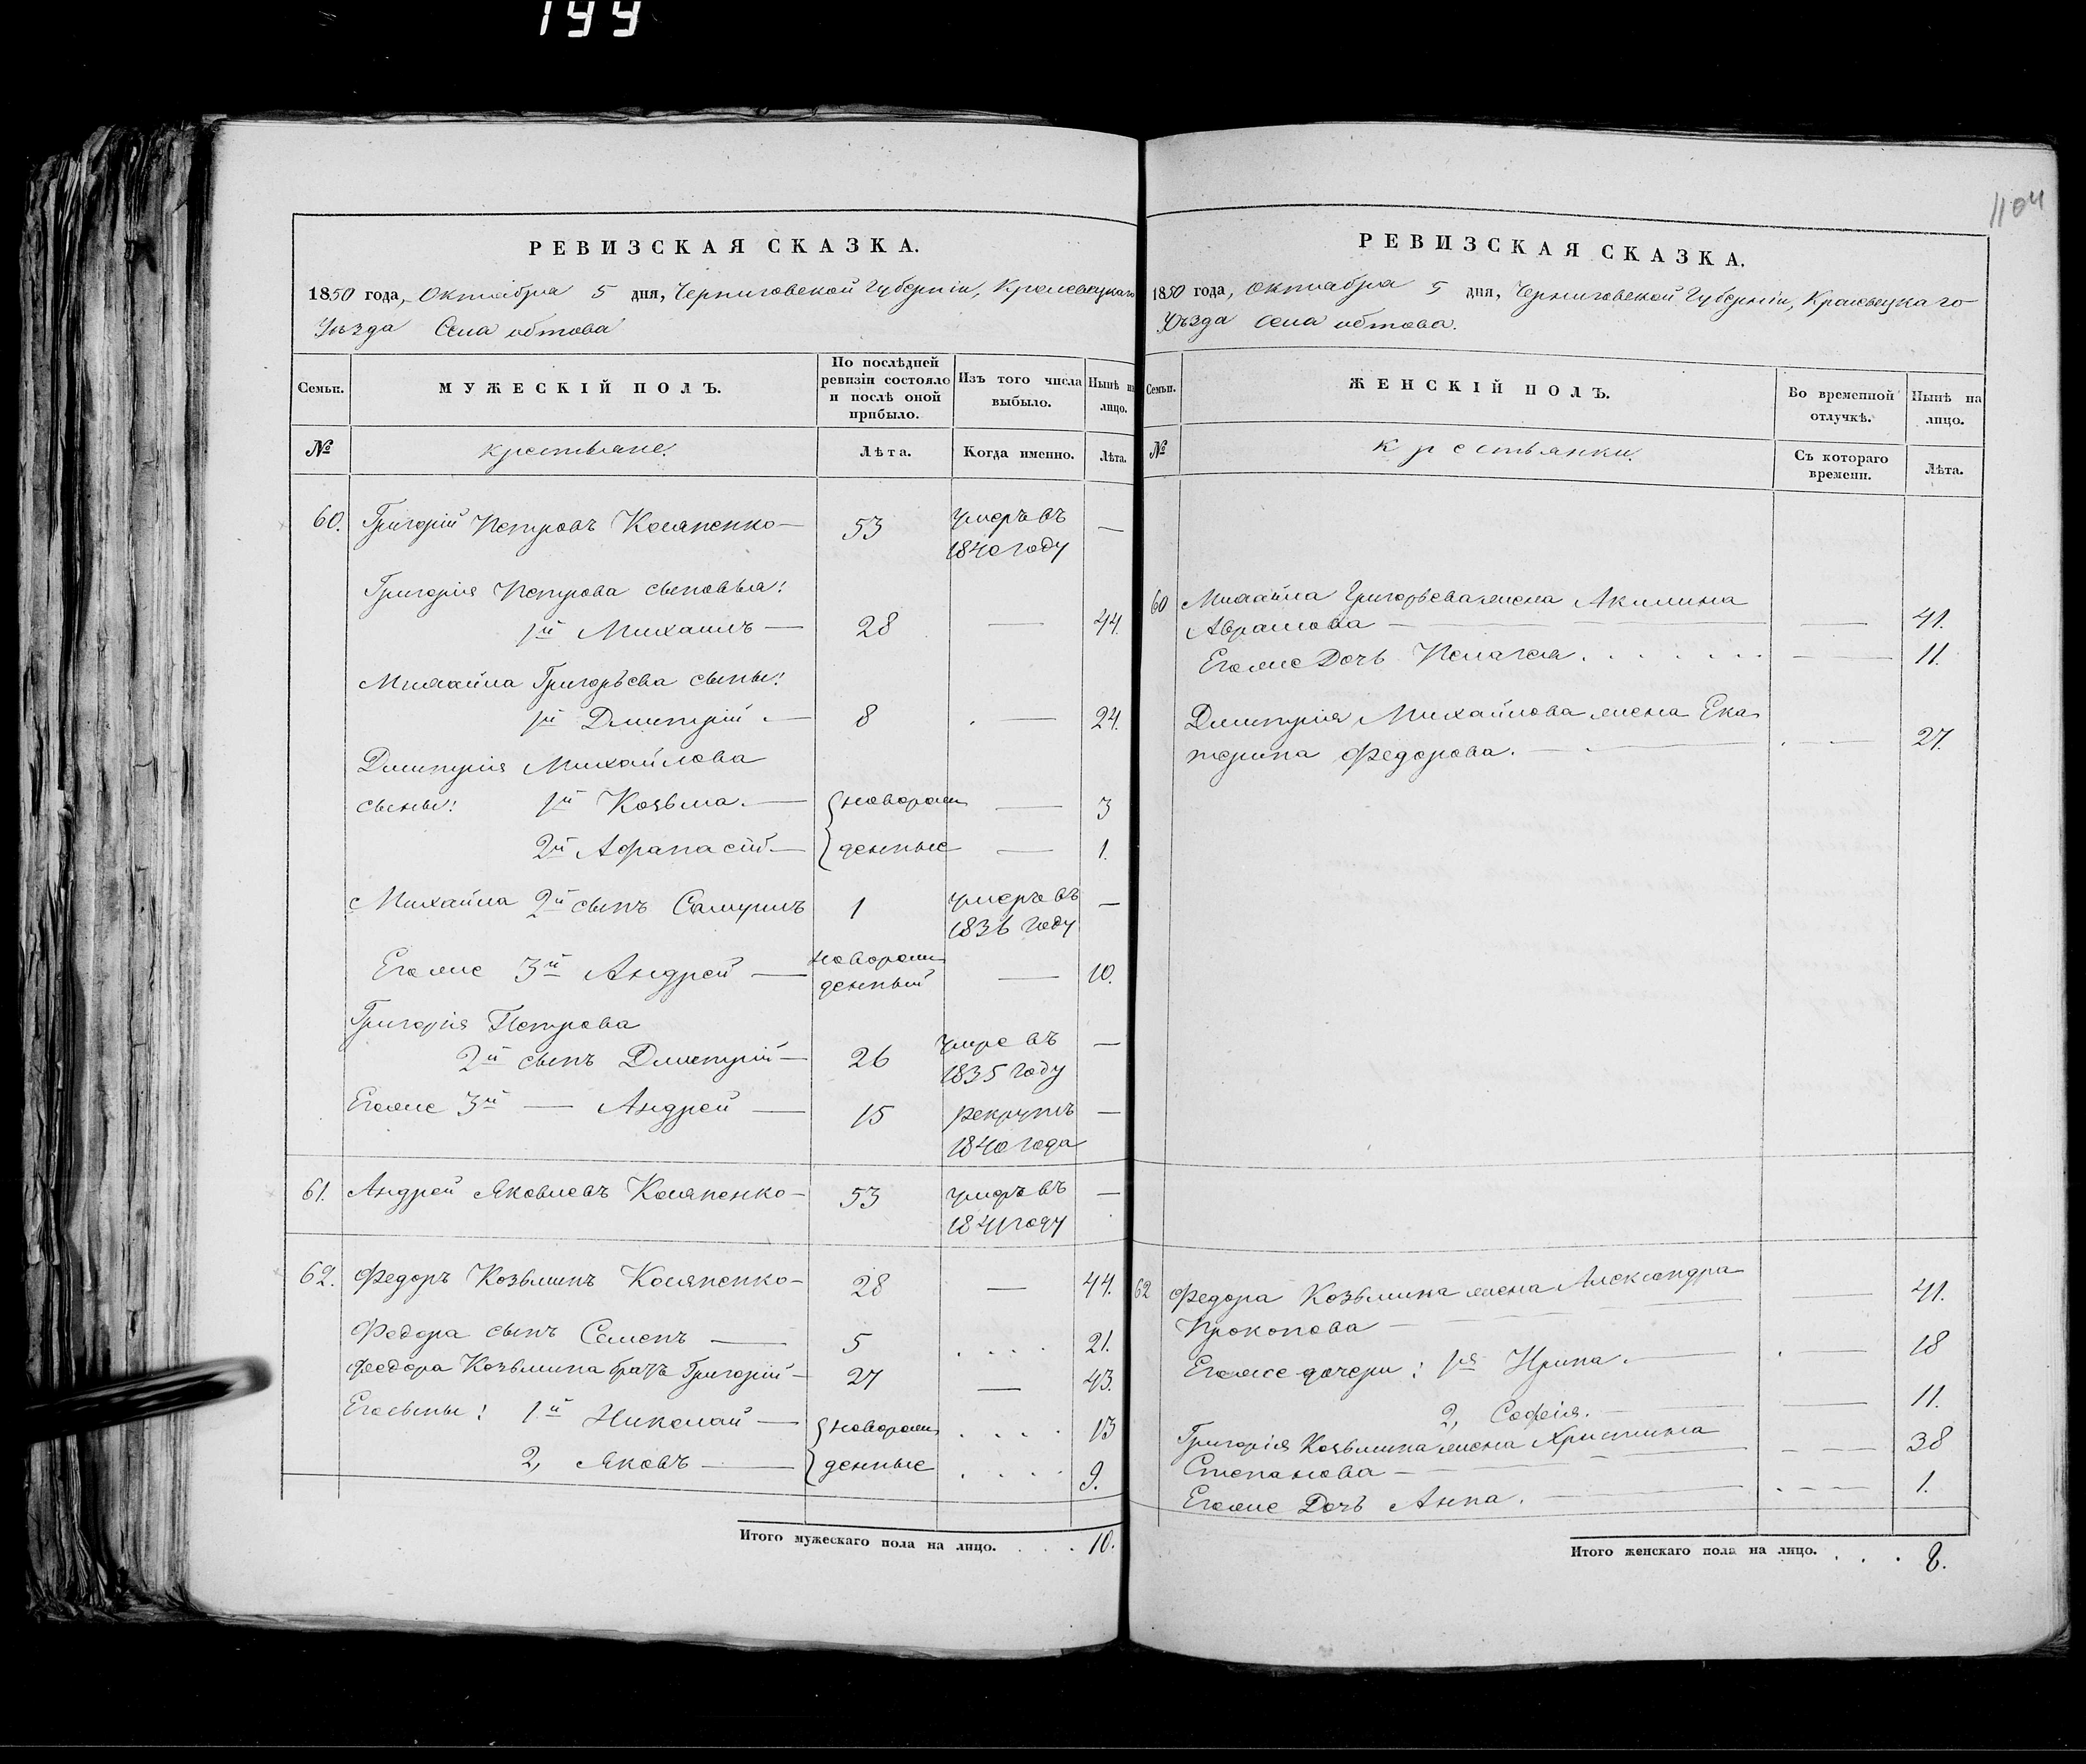 199
1104
РЕВИЗСКАЯ СКАЗКА.
1850 года, Октября 5 дня, Черниговской Губерніи, Кролевецкаго
Уѣзда Села обтова
Семьи.
МУЖЕСКІЙ ПОЛЪ.
По послѣдней ревизіи состояло и послѣ оной прибыло.
Изъ того числа выбыло.
Нынѣ на лицо.
№
крестьяне.
Лѣта.
Когда именно.
Лѣта.
60. Григорій Петровъ Коляненко — 53 умеръ въ —
1840 году
Григорія Петрова сыновья:
1й Михаилъ — 28 — 44.
Михайла Григорьева сыны:
1й Дмитрій — 8 — 24.
Дмитрія Михайлова
сыны: 1й Козьма — новорож — 3
2й Афанасій — денные — 1.
Михайла 2й сынъ Самуилъ 1 умеръ въ —
1836 году
Егоже 3й Андрей — новорож
денный — 10.
Григорія Петрова
2й сынъ Дмитрій — 26 умре въ —
1835 году
Егоже 3й — Андрей — 15 рекрутъ —
1840 года
61. Андрей Яковлевъ Коляненко — 53 умеръ въ —
1841 году
62. Федоръ Козьминъ Коляненко — 28 — 44.
Федора сынъ Семенъ — 5 . . . . 21.
Феодора Козьмина братъ Григорій — 27 — 43.
Его сыны: 1й Николай — новорож . . . . 13
2, Яковъ — денные . . . . 9.
Итого мужескаго пола на лицо. . . . 10.
РЕВИЗСКАЯ СКАЗКА.
1850 года, октября 5 дня, Черниговской Губерніи, Кролевецкаго
Уѣзда села обтова.
Семьи.
ЖЕНСКІЙ ПОЛЪ.
Во временной отлучкѣ.
Нынѣ на лицо.
№
крестьянки.
Съ котораго времени.
Лѣта.
60 Михайла Григорьева жена Акилина
Аврамова — — 41.
Егоже Дочь Пелагея . . . . . . — 11.
Дмитрія Михайлова жена Ека
терина Федорова. — — 27.
62 Федора Козьмина жена Александра
Прокопова — — 41.
Егоже дочери: 1я Ирина. — — 18
2, Софія. — — 11.
Григорія Козьмина жена Христина
Степанова — — 38
Егоже Дочь Анна. — — 1.
Итого женскаго пола на лицо. . . . 8.